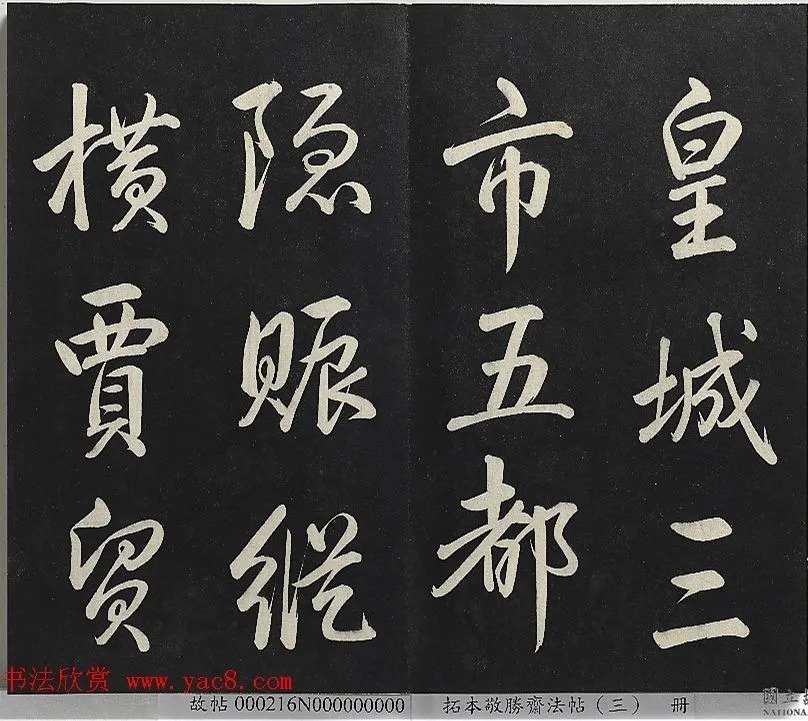 皇城三
市五都
隐賑縱
横賈貿
书法欣赏 www.yac8.com
故帖 000216N000000000
拓本敬勝齋法帖（三） 冊
國立
NATIONA